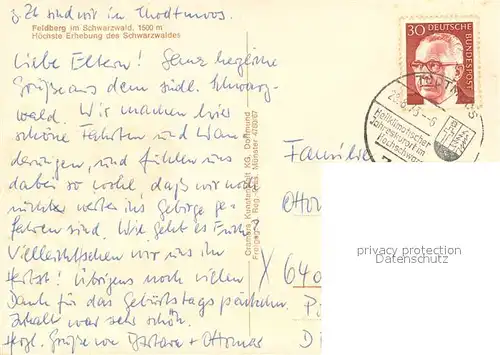 z. Zt. sind wir in Thodtmoos.
Feldberg im Schwarzwald, 1500 m
Höchste Erhebung des Schwarzwaldes
Liebe Eltern! Ganz herzliche
Grüße aus dem südl. Schwarz-
wald. Wir machen hier
schöne Fahrten und Wan-
derungen, und fühlen uns
dabei so wohl, daß wir noch
nicht weiter ins Gebirge ge-
fahren sind. Wie geht es Euch?
Vielleicht sehen wir uns im
Herbst! Übrigens noch vielen
Dank für das Geburtstagspäckchen.
Inhalt war sehr schön.
Herzl. Grüße von Barbara + Ottomar
Cramers Kunstanstalt KG, Dortmund
Freigeg. Reg.-Präs. Münster 4780/67
30 DEUTSCHE BUNDESPOST
Heilklimatischer
Jahreskurort im
Hochschwarzw
Familie
Otto
X 640
privacy protection
Datenschutz
D